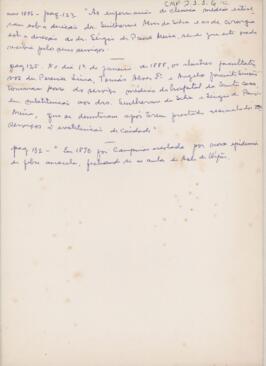 CMP 2.3.3.6
ano 1886 - pag. 123 "As enfermarias de clinica médica estive
ram sob a direcção dr. Guilherme Alves da Silva e as de cirurgia
sob a direcção do dr. Sergio de Paiva Meira, sendo que este nada
recebe pelos seus serviços.
pag 125. "No dia 1º de janeiro de 1888, os ilustres facultati
vos de Pereira Lima, Tomás Alves Fº e Angelo
tomaram posse do serviço médico do hospital da Santa Casa
em substituição aos drs. Guilherme da Silva e Sérgio de Paiva
Meira, que se demitiram após terem prestado
serviços à instituição de Caridade"
pag 132 - "Em 1890 foi Campinas assolada por nova epidemia
de febre amarela, fechando-se as aulas do Asilo de Órfãs.